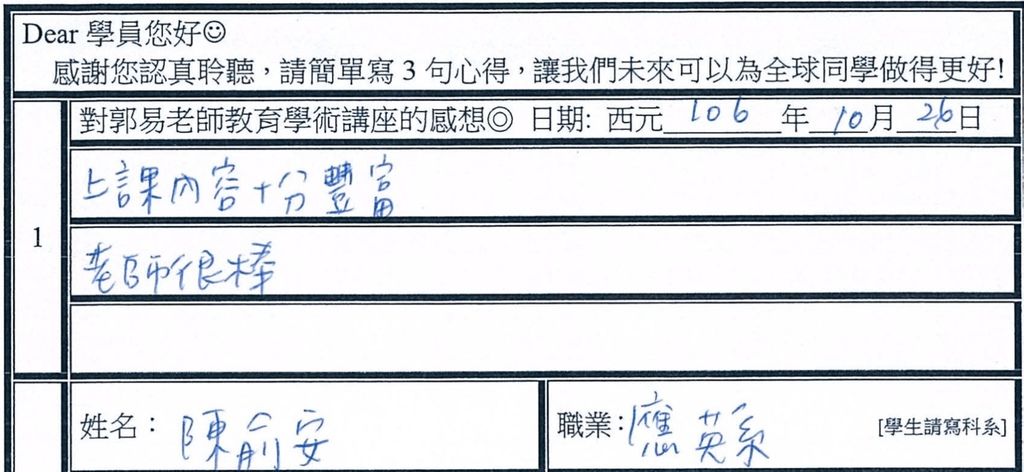 Dear 學員您好☺
感謝您認真聆聽，請簡單寫 3 句心得，讓我們未來可以為全球同學做得更好!
1
對郭易老師教育學術講座的感想◎ 日期: 西元 106 年 10 月 26 日
上課內容十分豐富
老師很棒
姓名： 陳俞安
職業： 應英系 [學生請寫科系]